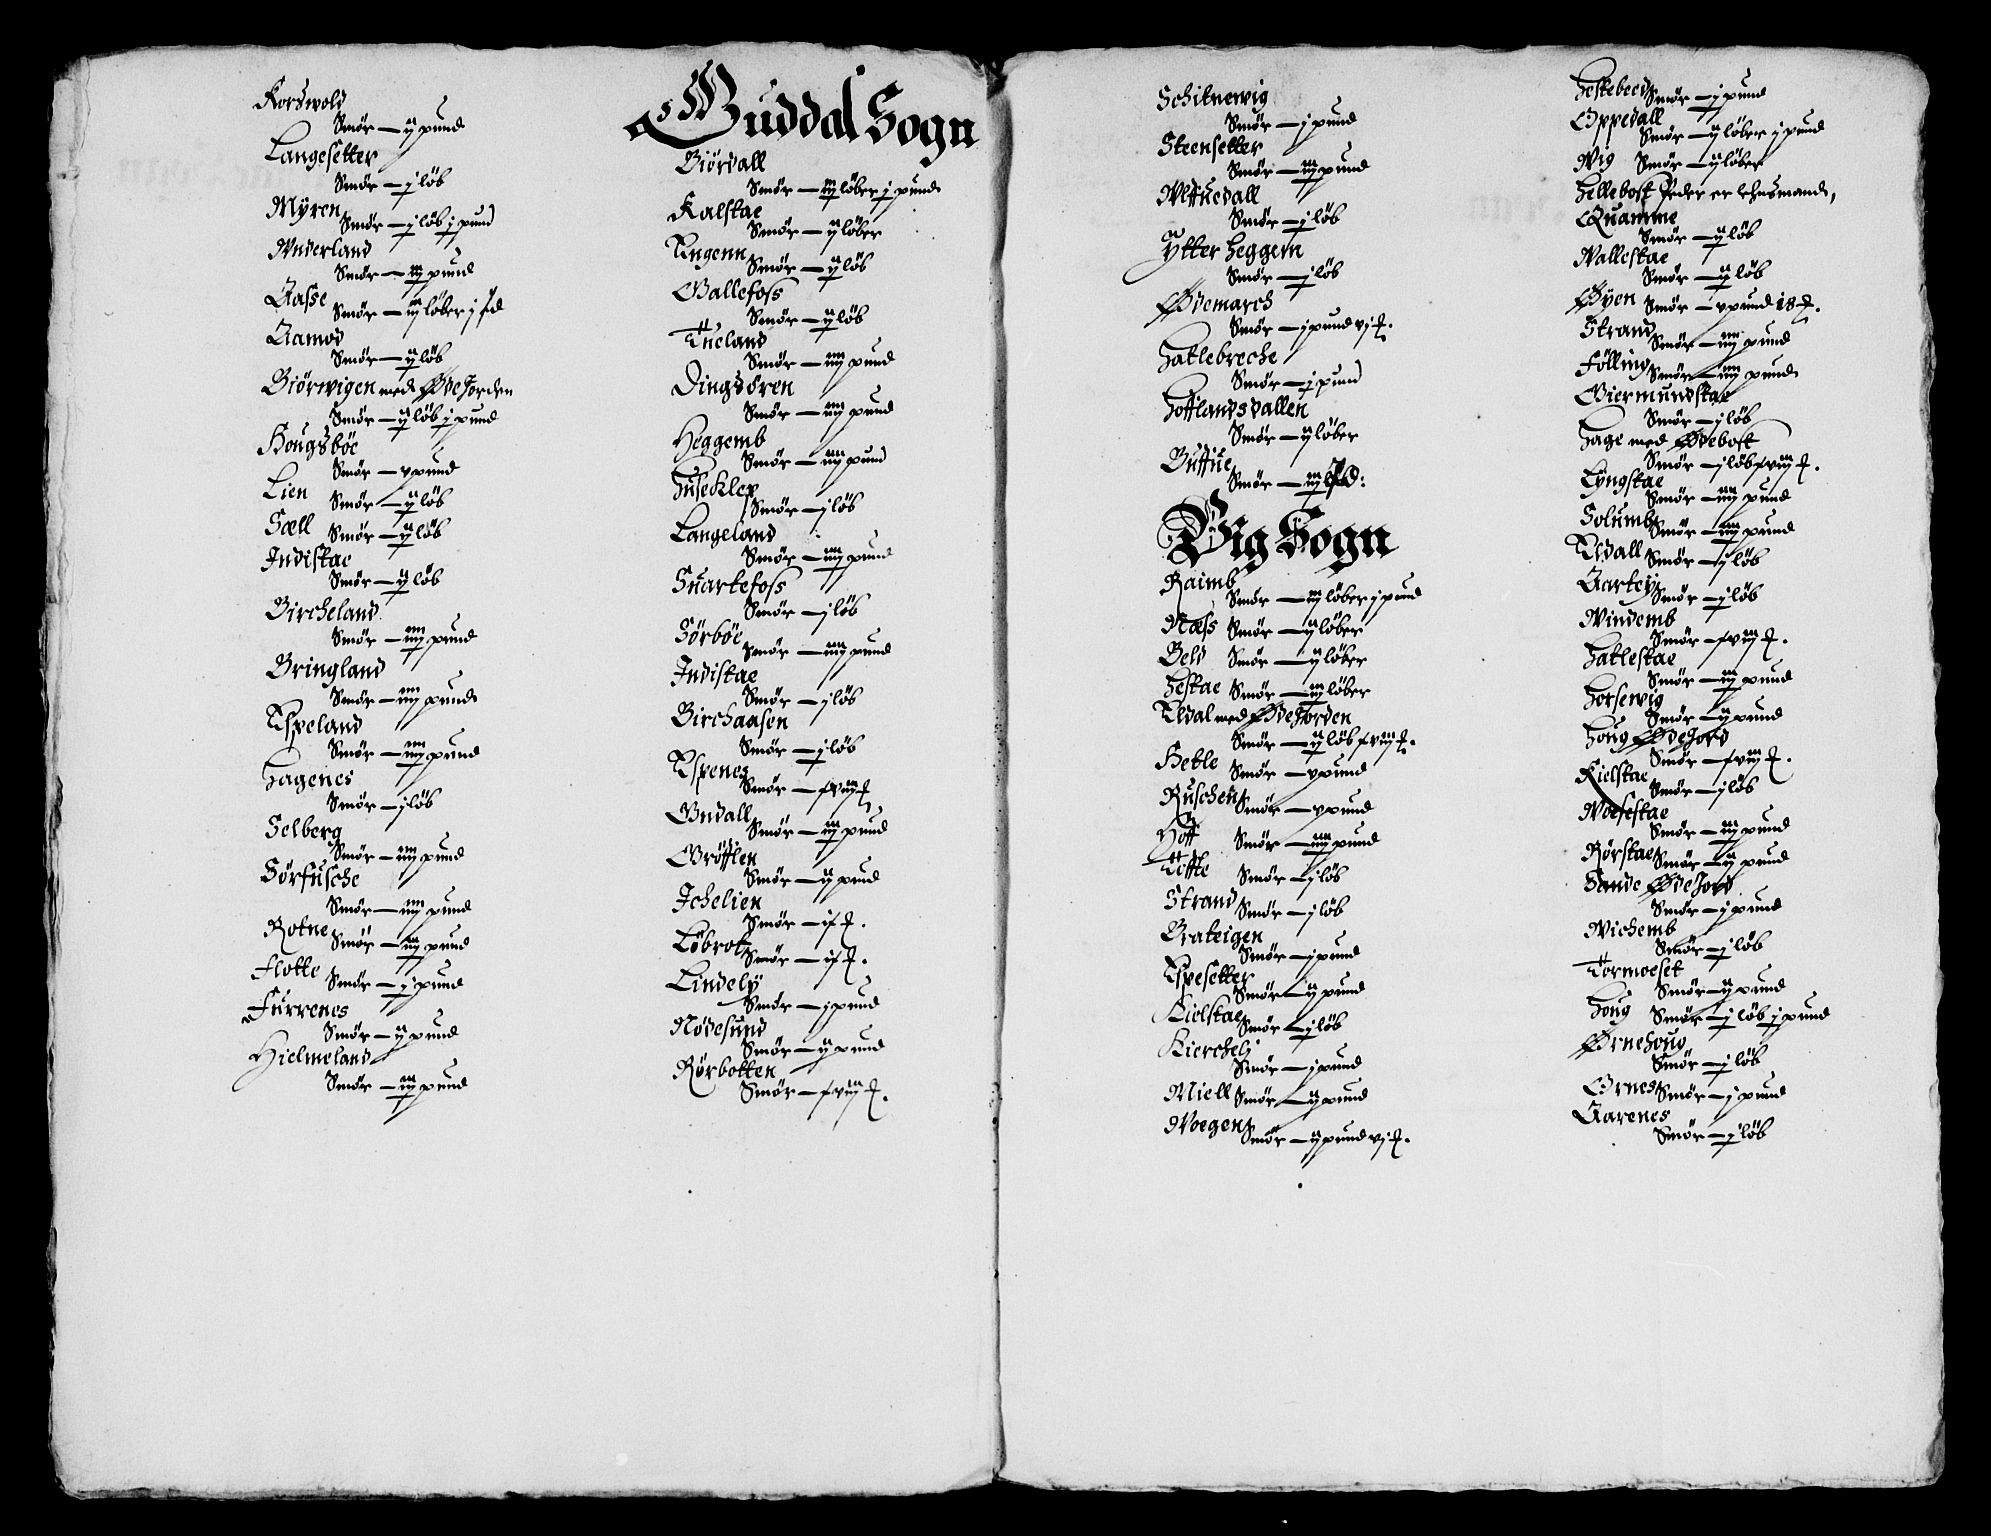 Korswold
Smör — ij pund
Langesetter
Smör — j löb
Myren
Smör — j löb j pund
Vnderland
Smör — iij pund
Aasse
Smör — iij löber j pd
Aamod
Smör — ij löb
Biörwigen med Ødejorden
Smör — ij löb j pund
Hougsböe
Smör — v pund
Lien
Smör — ij löb
Sæll
Smör — ij löb
Indistae
Smör — ij löb
Bircheland
Smör — iiij pund
Bringland
Smör — iiij pund
Espeland
Smör — iiij pund
Hagenes
Smör — j löb
Selberg
Smör — iiij pund
Sörfusche
Smör — iiij pund
Rotne
Smör — iij pund
Flotte
Smör — j pund
Furrenes
Smör — ij pund
Hielmeland
Smör — iij pund
Guddal Sogn
Biördall
Smör — iij löber j pund
Kalstae
Smör — ij löber
Engenn
Smör — ij löb
Gallefoss
Smör — ij löb
Tueland
Smör — iiij pund
Dingsören
Smör — iiij pund
Heggemb
Smör — iiij pund
Huseklep
Smör — j löb
Langeland
Smör — iiij pund
Suartefoss
Smör — j löb
Sörböe
Smör — iiij pund
Indistae
Smör — j löb
Birchaasen
Smör — j löb
Espenes
Smör —
Gudall
Smör — iij pund
Gröfflen
Smör — ij pund
Ichelien
Smör —
Löbrot
Smör —
Lindely
Smör — j pund
Nödesund
Smör — ij pund
Rörbotten
Smör —
Schilnewig
Smör — j pund
Steensetter
Smör — iij pund
Vttuedall
Smör — j löb
Ytter Heggem
Smör — j löb
Ødemarch
Smör — j pund vj
Hatlebreche
Smör — j pund
Hofflandsdallen
Smör — ij löber
Buttue
Smör — iij pd:
Vig Sogn
Raimb
Smör — iij löber j pund
Næss
Smör — ij löber
Beld
Smör — ij löber
Hestae
Smör — iij löber
Eldal med Ødejorden
Smör — ij löb
Hetle
Smör — v pund
Ruschen
Smör — v pund
Hoff
Smör — iiij pund
Tiffte
Smör — j löb
Strand
Smör — j löb
Brateigen
Smör — j pund
Espesetter
Smör — ij pund
Kielstae
Smör — j löb
Kierchelj
Smör — j pund
Miell
Smör — ij pund
Voegen
Smör — ij pund vj
Hestebeed
Smör — j pund
Oppedall
Smör — ij löber j pund
Vig
Smör — ij löber
Hellebost
Quamme
Smör — ij löb
Vallestae
Smör — ij löb
Øyen
Smör — v pund 18
Strand
Smör — iiij pund
Fölling
Smör — iiij pund
Giermundstae
Smör — j löb
Hage med Ødebost
Smör — j löb
Lyngstae
Smör — iiij pund
Solumb
Smör — iiij pund
Eldall
Smör — j löb
Aartey
Smör — j löb
Vindemb
Smör —
Hatlestae
Smör — iij pund
Horsewig
Smör — ij pund
Houg Ødejord
Smör —
Kielstae
Smör — j löb
Voefestae
Smör — iij pund
Rörstae
Smör — ij pund
Sande Ødejord
Smör — j pund
Vichemb
Smör — j löb
Tormoeset
Smör — ij pund
Houg
Smör — j löb j pund
Ørnehoug
Smör — j löb
Ornes
Smör — j pund
Aarenes
Smör — j löb